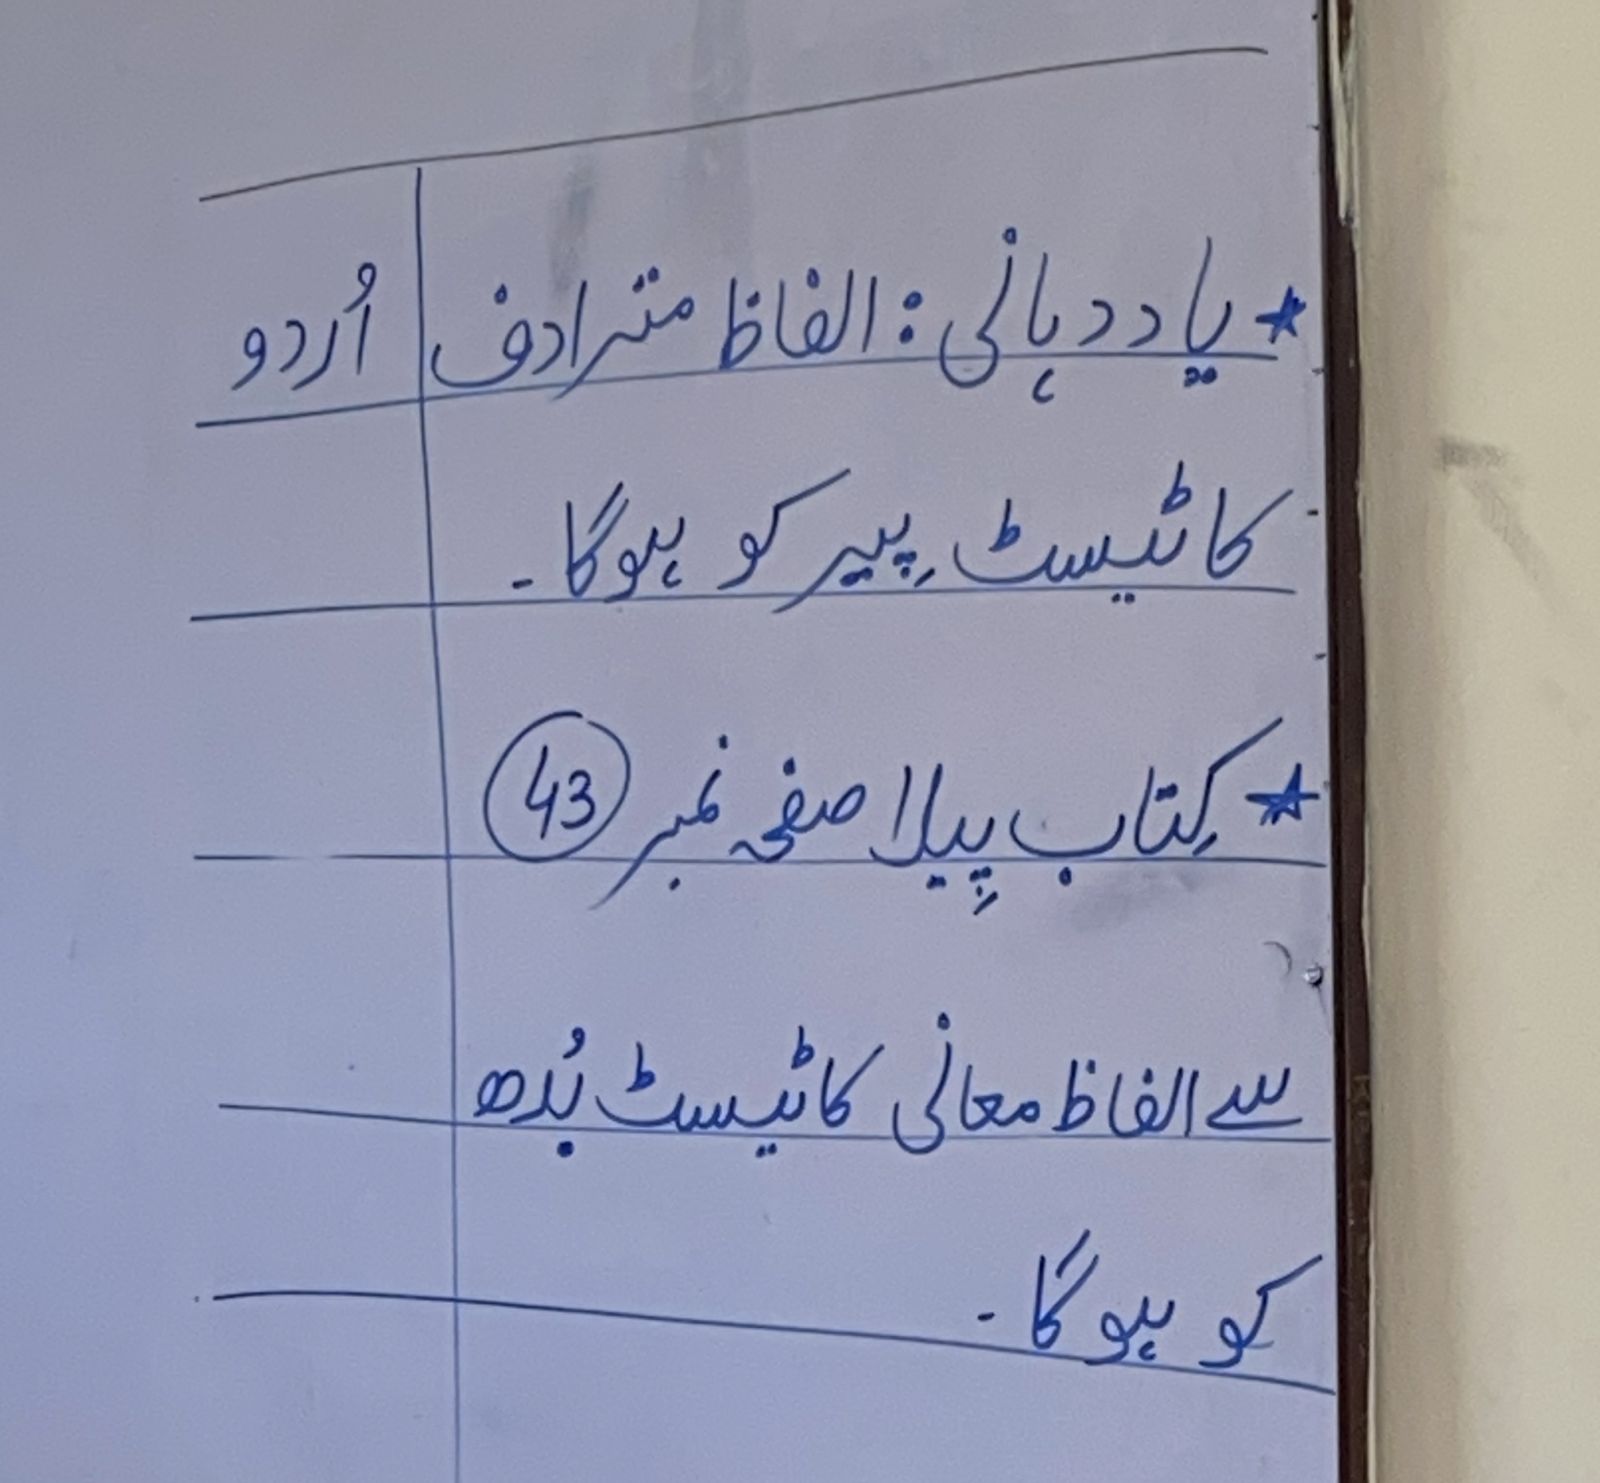 ★ یاد دہانی: الفاظ مترادف اُردو
کا ٹیسٹ پیر کو ہوگا۔
★ کِتاب پِیلا صفحہ نمبر 43
سے الفاظ معانی کا ٹیسٹ بُدھ
کو ہوگا۔